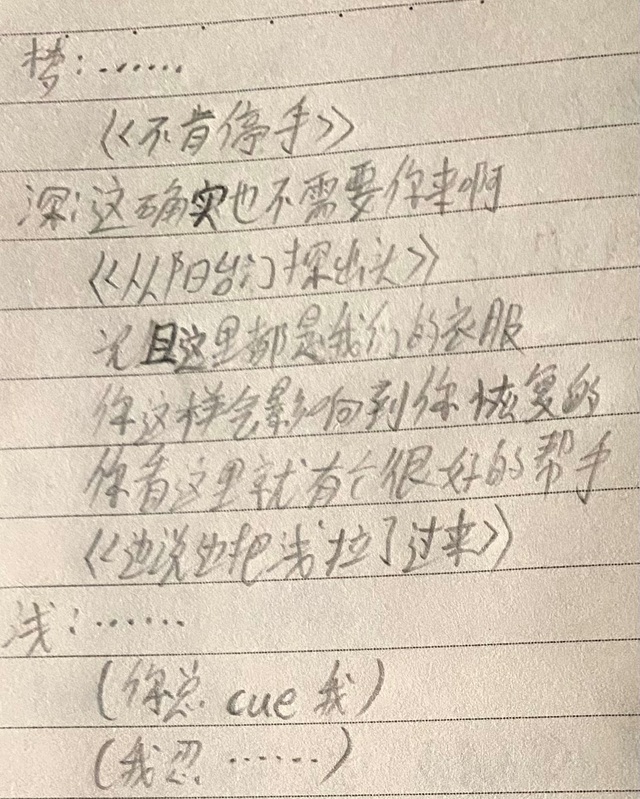 梦:……
《不肯停手》
深:这确实也不需要你来啊
《从阳台门探出头》
况且这里都是我们的衣服
你这样会影响到你恢复的
你看这里就有个很好的帮手
《边说边把浅拉了过来》
浅:……
(你总cue我)
(我忍……)